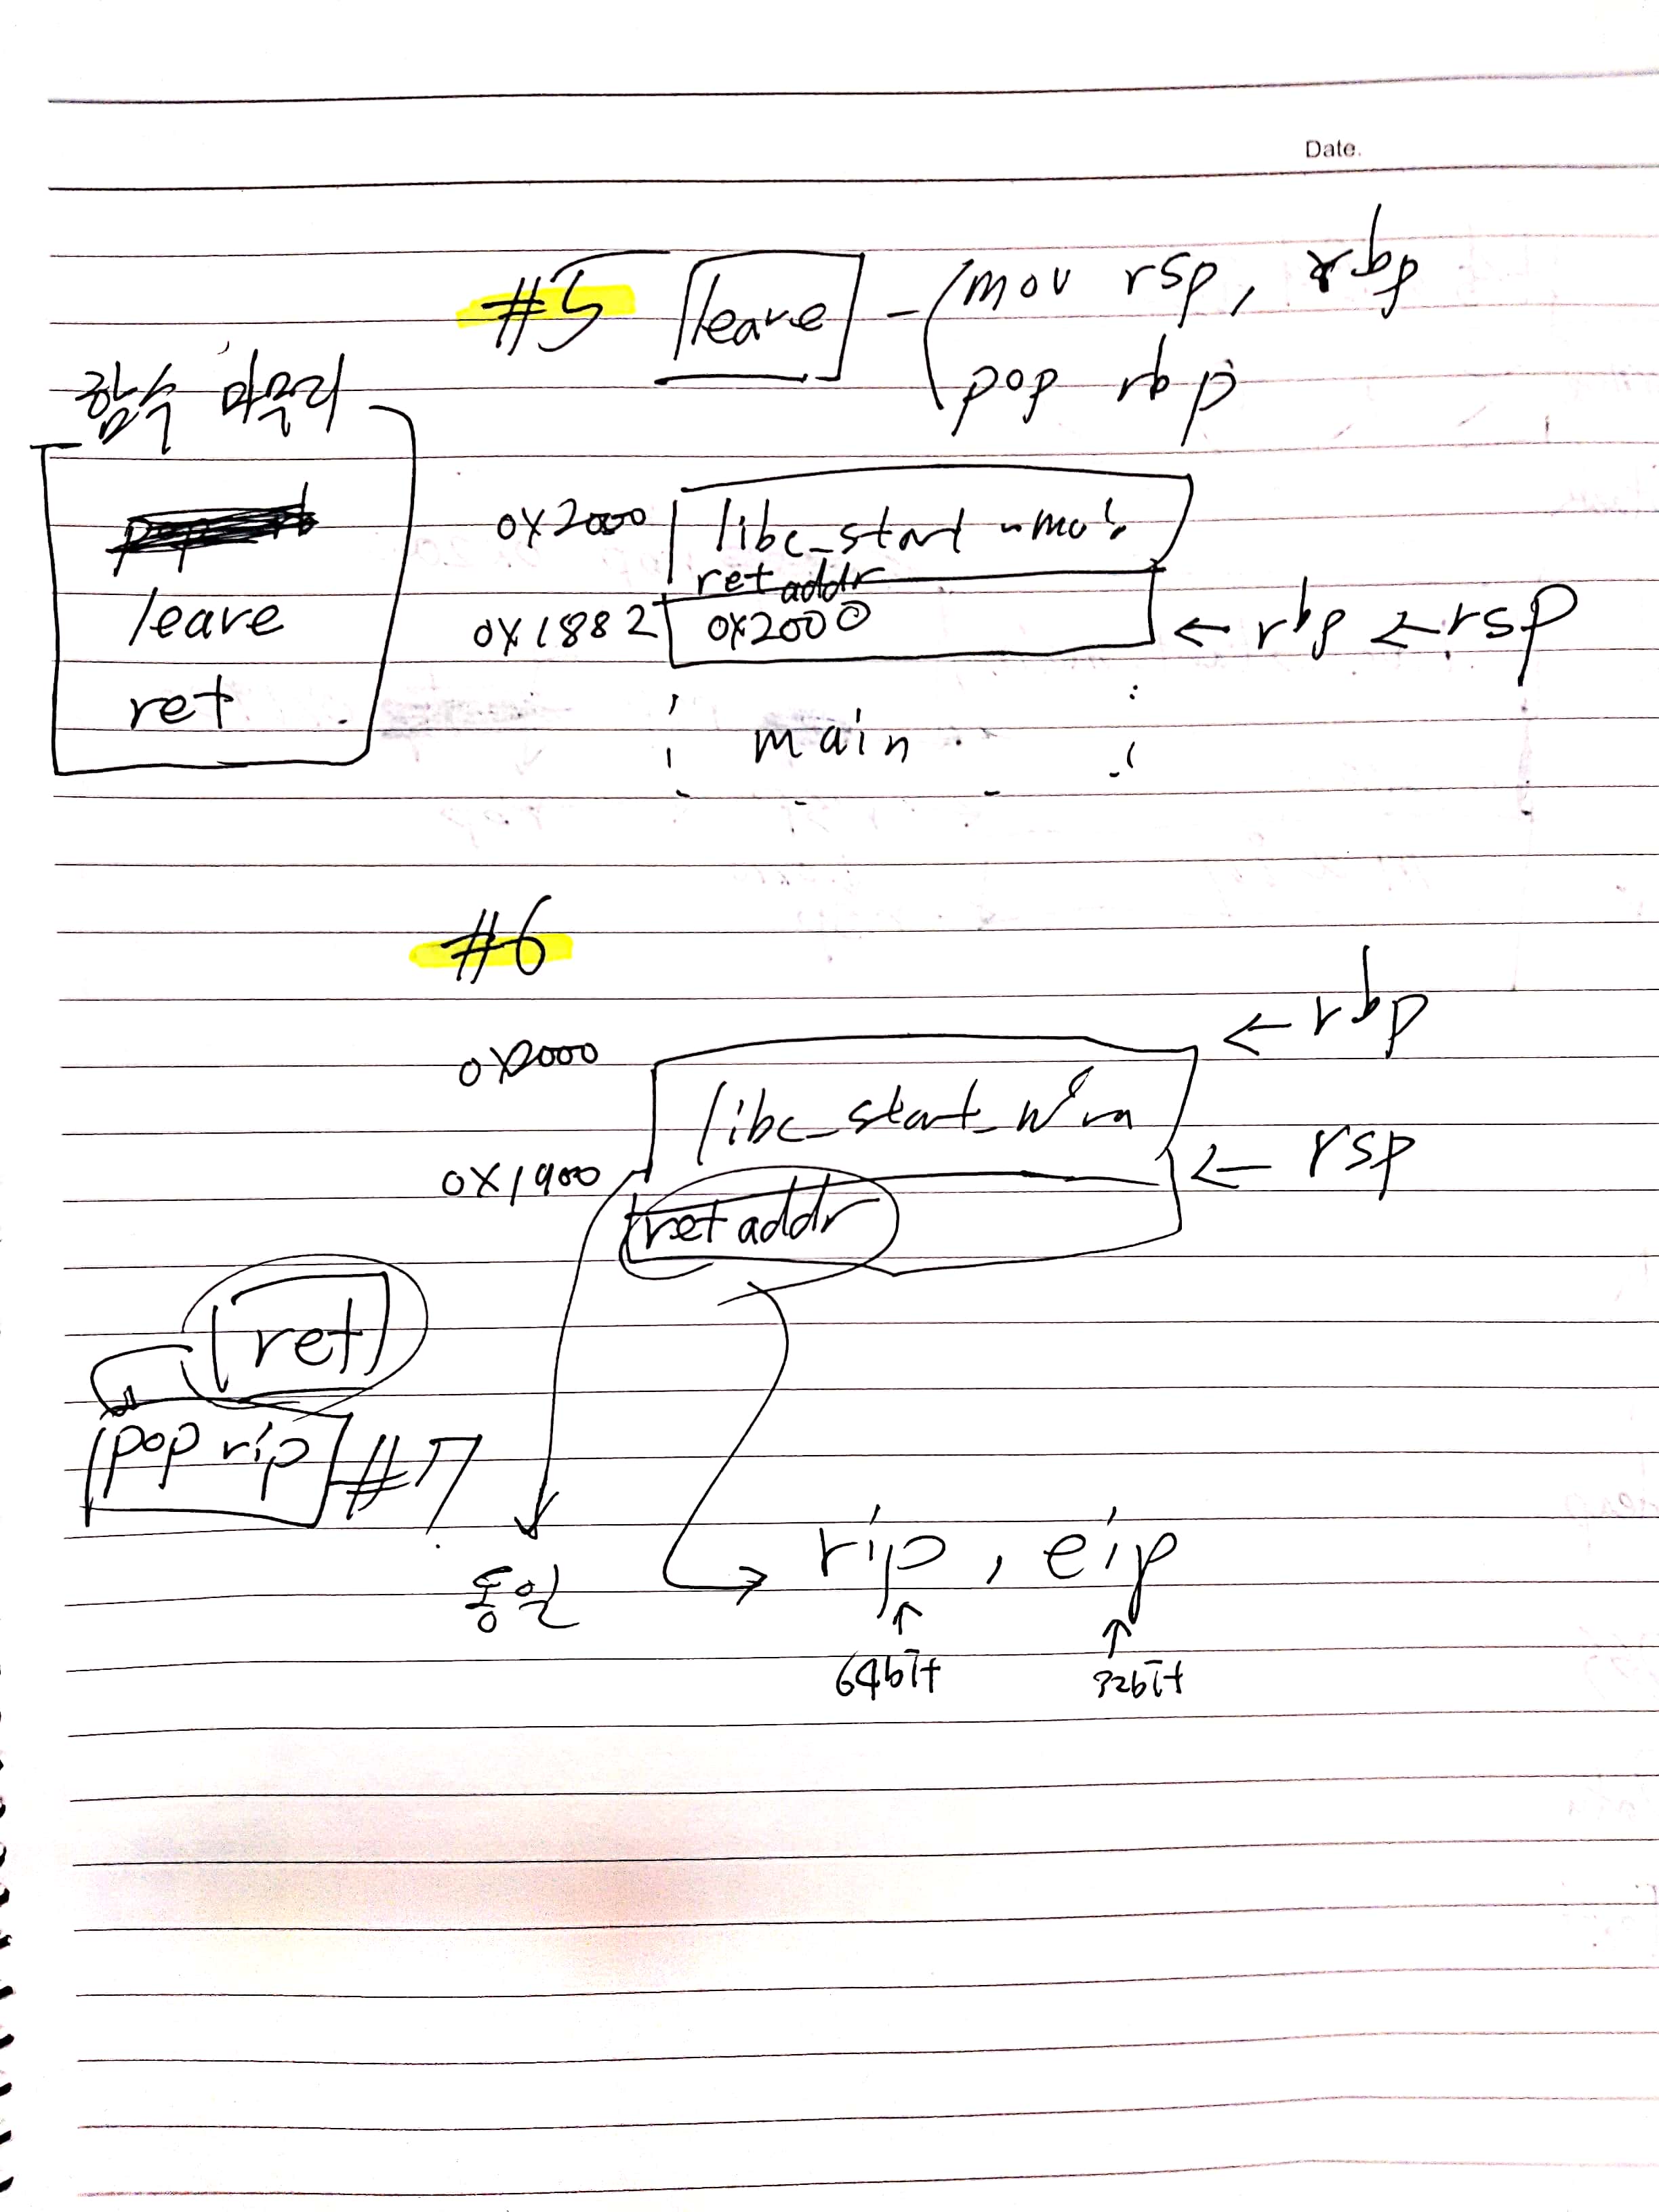 Date.
#5 leave - mov rsp, rbp
pop rbp
함수 마무리
leave
ret
0x2000 libc_start
ret addr
0x1882 0x2000 ← rbp ← rsp
main
#6
0x2000 ← rbp
libc_start_
0x1900 ← rsp
ret addr
ret
pop rip #7
동일
rip, eip
64bit 32bit